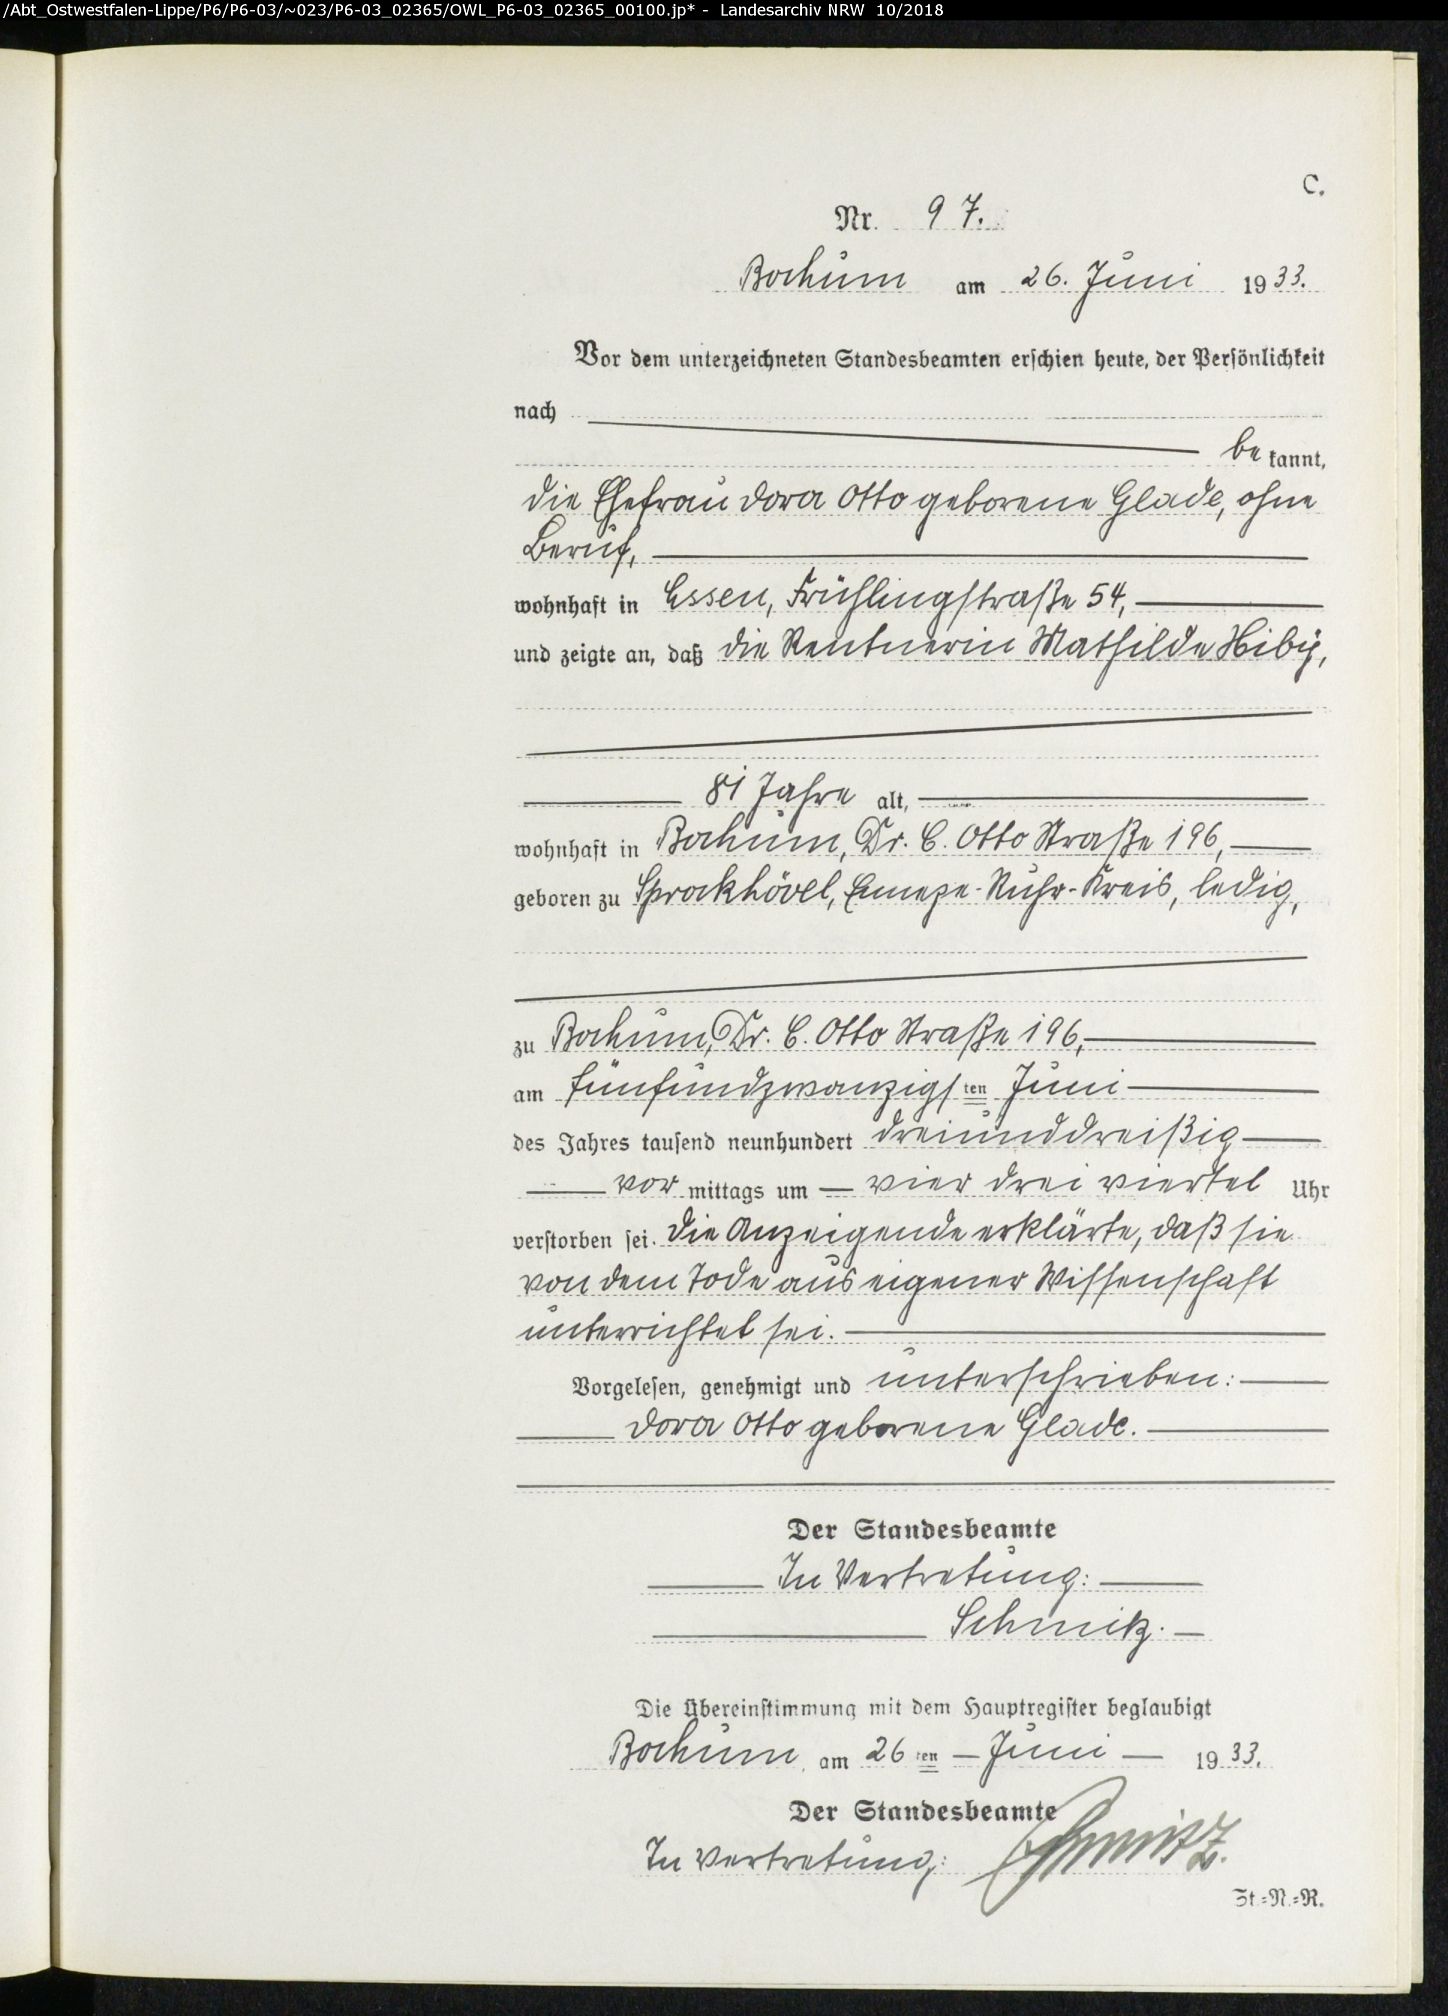 /Abt_Ostwestfalen-Lippe/P6/P6-03/~023/P6-03_02365/OWL_P6-03_02365_00100.jp* - Landesarchiv NRW 10/2018
C.
Nr. 97.
Bochum am 26. Juni 1933.
Vor dem unterzeichneten Standesbeamten erschien heute, der Persönlichkeit
nach
bekannt,
die Ehefrau Dora Otto geborene Glade, ohne
Beruf,
wohnhaft in Essen, Frühlingstraße 54,
und zeigte an, daß die Rentnerin Mathilde Hiby,
81 Jahre alt,
wohnhaft in Bochum, Dr. C. Otto Straße 196,
geboren zu Sprockhövel, Ennepe-Ruhr-Kreis, ledig,
zu Bochum, Dr. C. Otto Straße 196,
am fünfundzwanzigsten Juni
des Jahres tausend neunhundert dreiunddreißig
vormittags um vier drei viertel Uhr
verstorben sei. Die Anzeigende erklärte, daß sie
von dem Tode aus eigener Wissenschaft
unterrichtet sei.
Vorgelesen, genehmigt und unterschrieben:
Dora Otto geborene Glade.
Der Standesbeamte
In Vertretung:
Schmitz.
Die Übereinstimmung mit dem Hauptregister beglaubigt
Bochum am 26ten Juni 1933.
Der Standesbeamte
In Vertretung: Schmitz.
St.=N.=R.